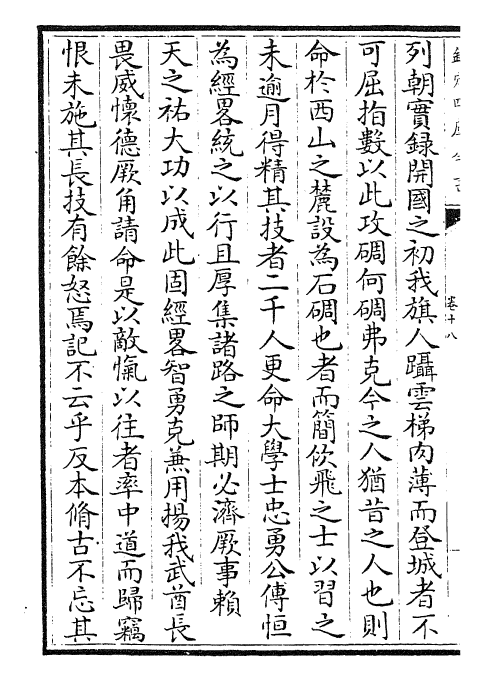 欽定四庫全書
卷十八
列朝實錄開國之初我旗人躡雲梯肉薄而登城者不
可屈指數以此攻碉何碉弗克今之人猶昔之人也則
命於西山之麓設為石碉也者而簡佽飛之士以習之
未逾月得精其技者二千人更命大學士忠勇公傅恒
為經畧統之以行且厚集諸路之師期必濟厥事賴
天之祐大功以成此固經畧智勇克兼用揚我武酋長
畏威懷德厥角請命是以敵愾以往者率中道而歸竊
恨未施其長技有餘怒焉記不云乎反本脩古不忘其